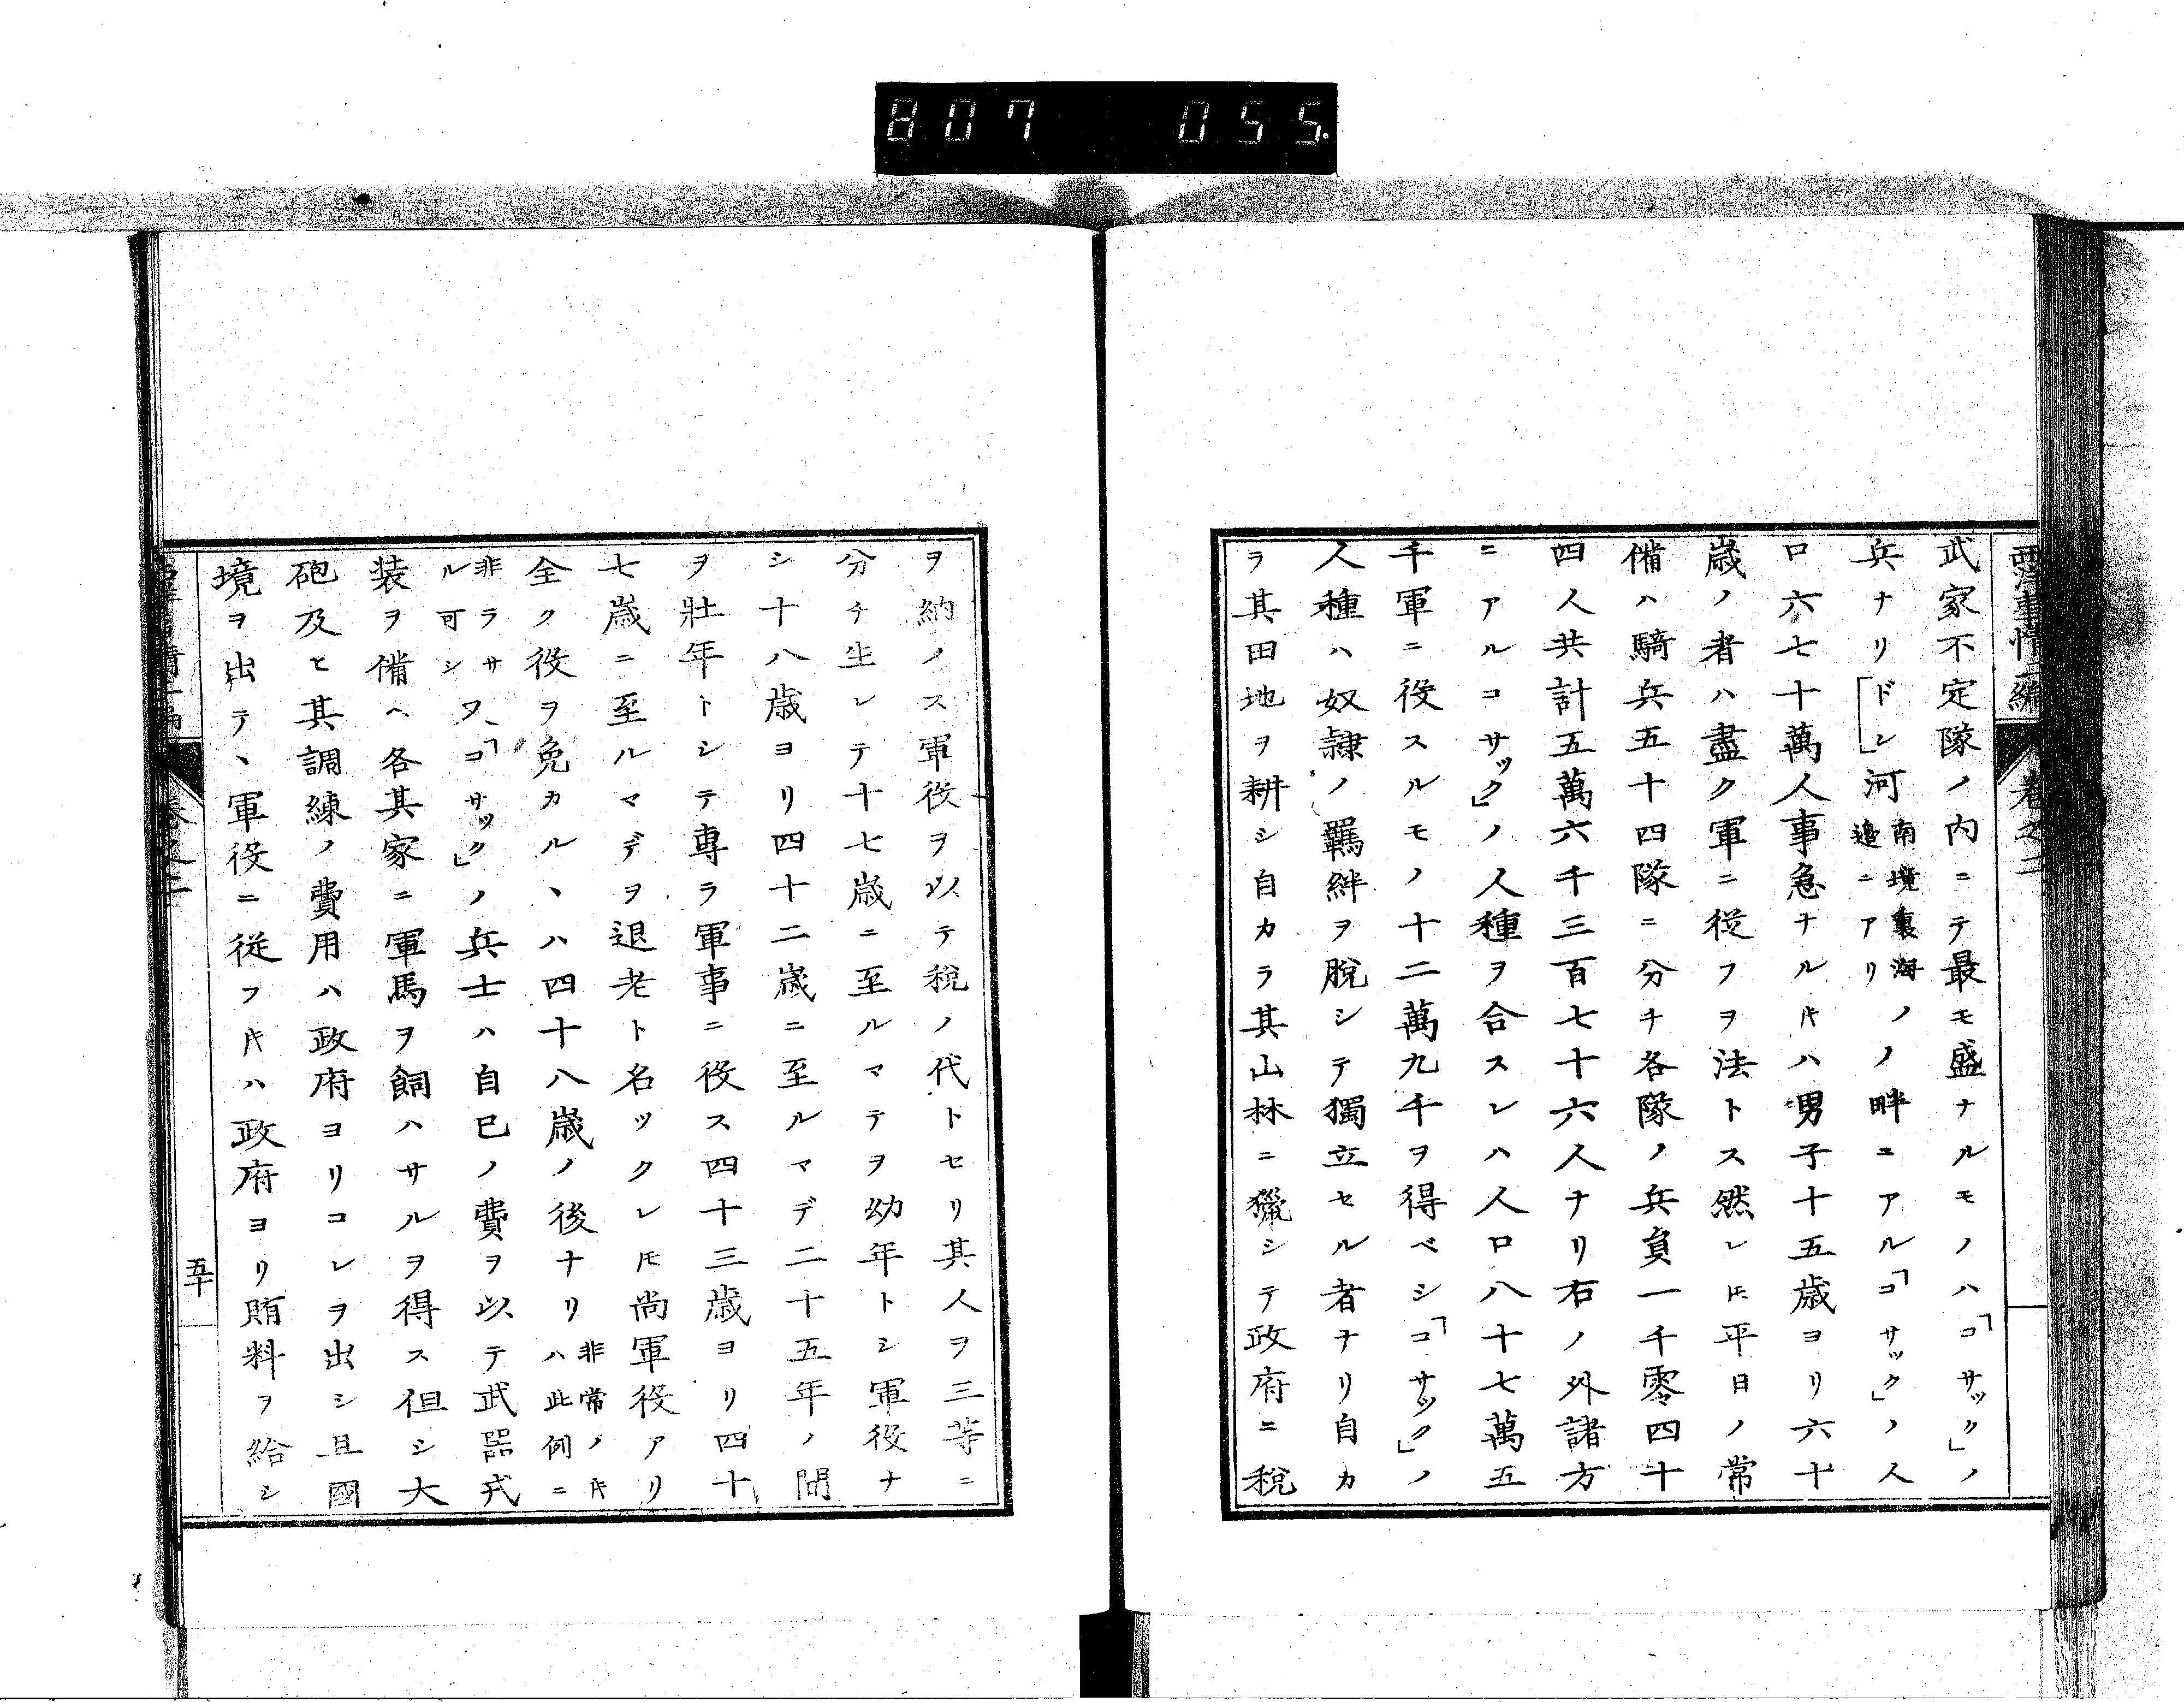 807 055
西洋事情二編 卷之二
武家不定隊ノ内ニテ最モ盛ナルモノハ「コサック」ノ
兵ナリ「ドン」河南境裏海ノ邉ニアリノ畔ニアル「コサック」ノ人
口六七十萬人事急ナル𪜈ハ男子十五歳ヨリ六十
歳ノ者ハ盡ク軍ニ從フヲ法トス然レ𪜈平日ノ常
備ハ騎兵五十四隊ニ分チ各隊ノ兵員一千零四十
四人共計五萬六千三百七十六人ナリ右ノ外諸方
ニアルコサック」ノ人種ヲ合スレハ人口八十七萬五
千軍ニ役スルモノ十二萬九千ヲ得ベシ「コサック」ノ
人種ハ奴隷ノ羈絆ヲ脫シテ獨立セル者ナリ自カ
ラ其田地ヲ耕シ自カラ其山林ニ獵シテ政府ニ稅
ヲ納ノス軍役ヲ以テ稅ノ代トセリ其人ヲ三等ニ
分チ生レテ十七歳ニ至ルマテヲ幼年トシ軍役ナ
シ十八歳ヨリ四十二歳ニ至ルマデ二十五年ノ間
ヲ壯年トシテ專ラ軍事ニ役ス四十三歳ヨリ四十
七歳ニ至ルマデヲ退老ト名ツクレ𪜈尚軍役アリ
全ク役ヲ免カルヽハ四十八歳ノ後ナリ非常ノ𪜈ハ此例ニ
非ラサル可シ又「コサック」ノ兵士ハ自己ノ費ヲ以テ武器戎
装ヲ備ヘ各其家ニ軍馬ヲ飼ハサルヲ得ス但シ大
砲及ヒ其調練ノ費用ハ政府ヨリコレヲ出シ且國
境ヲ出テヽ軍役ニ從フ𪜈ハ政府ヨリ賄料ヲ給シ
卷之二
五十